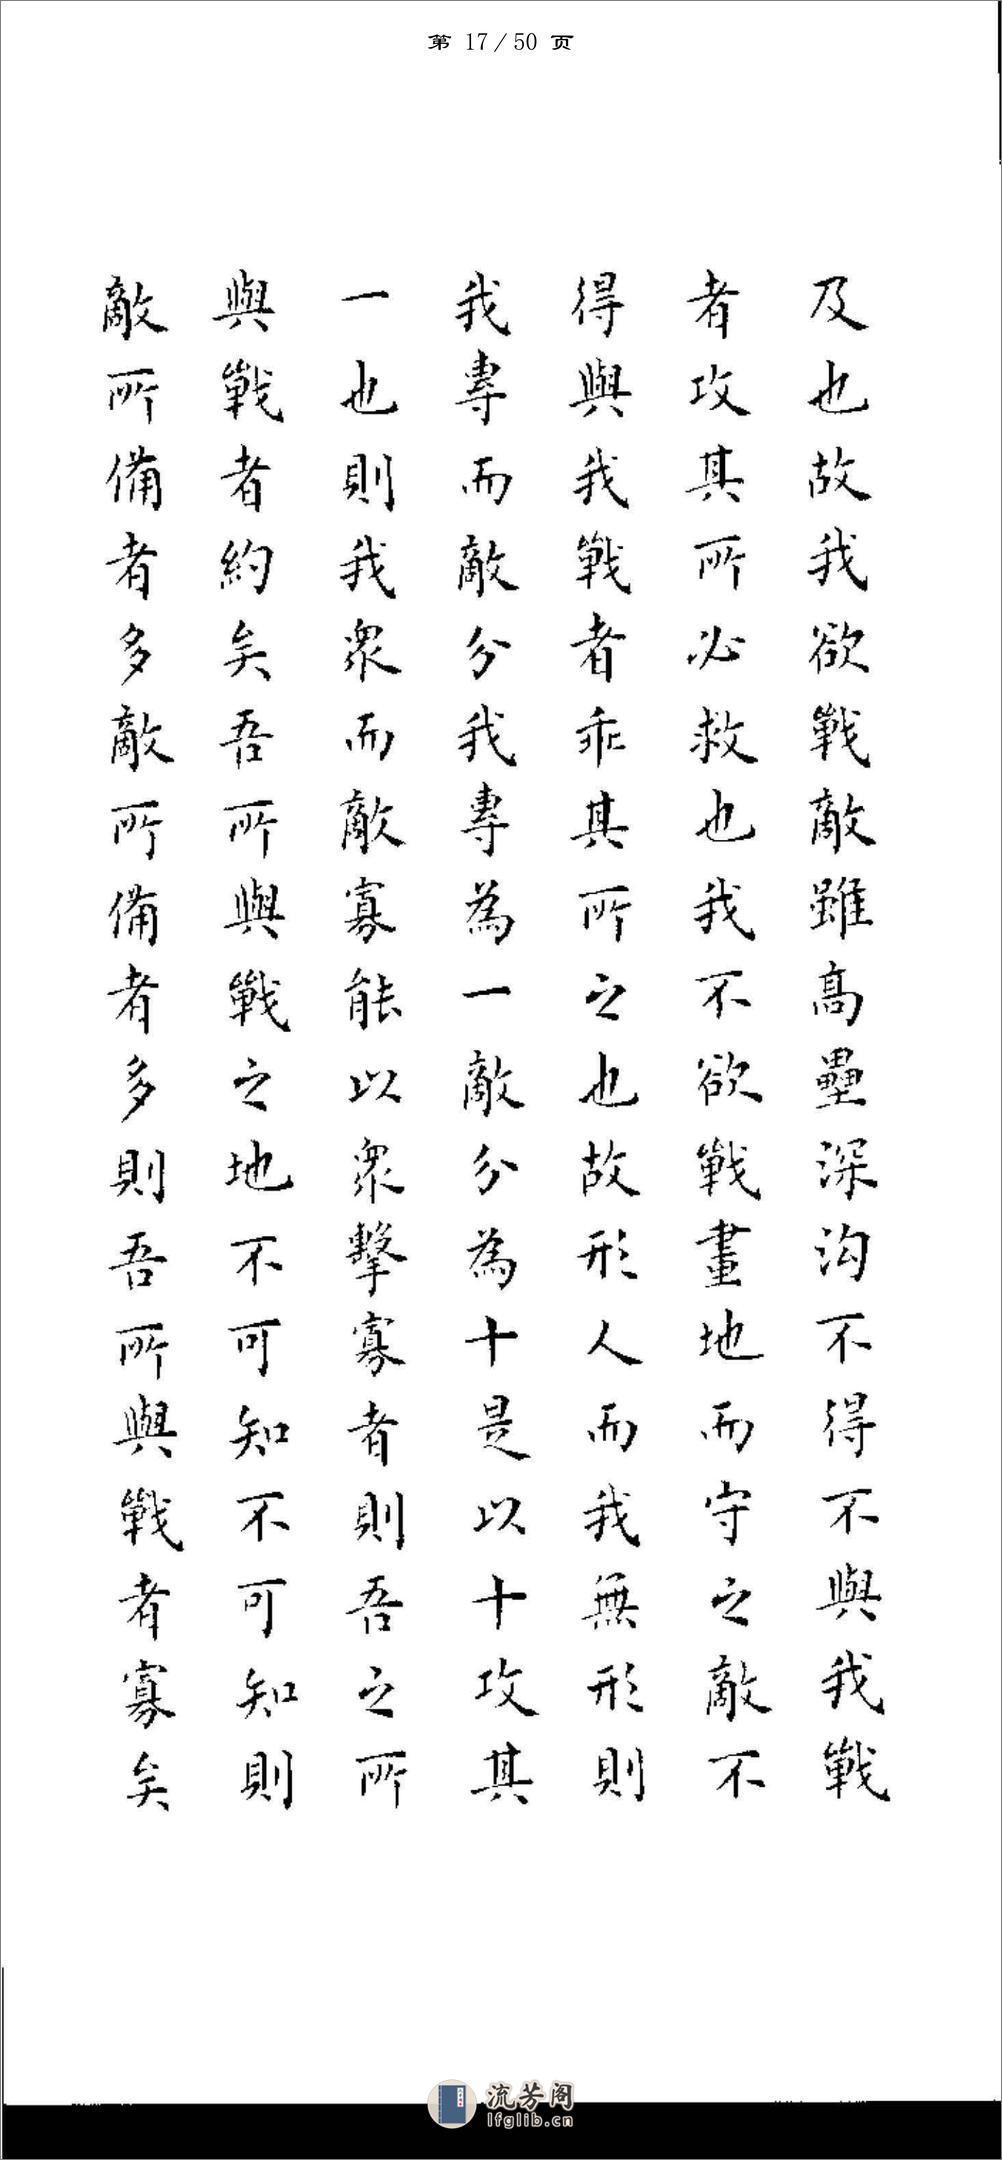 第 17/50 页
及也故我欲戰敵雖高壘深沟不得不與我戰
者攻其所必救也我不欲戰畫地而守之敵不
得與我戰者乖其所之也故形人而我無形則
我專而敵分我專為一敵分為十是以十攻其
一也則我眾而敵寡能以眾擊寡者則吾之所
與戰者約矣吾所與戰之地不可知不可知則
敵所備者多敵所備者多則吾所與戰者寡矣
流芳阁
lfglib.cn